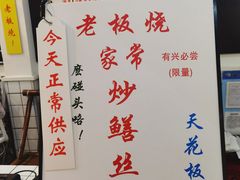 老板烧
家常炒鳝丝
有兴必尝
(限量)
天花板
今天正常供应
麽碰头咯！
老板烧！